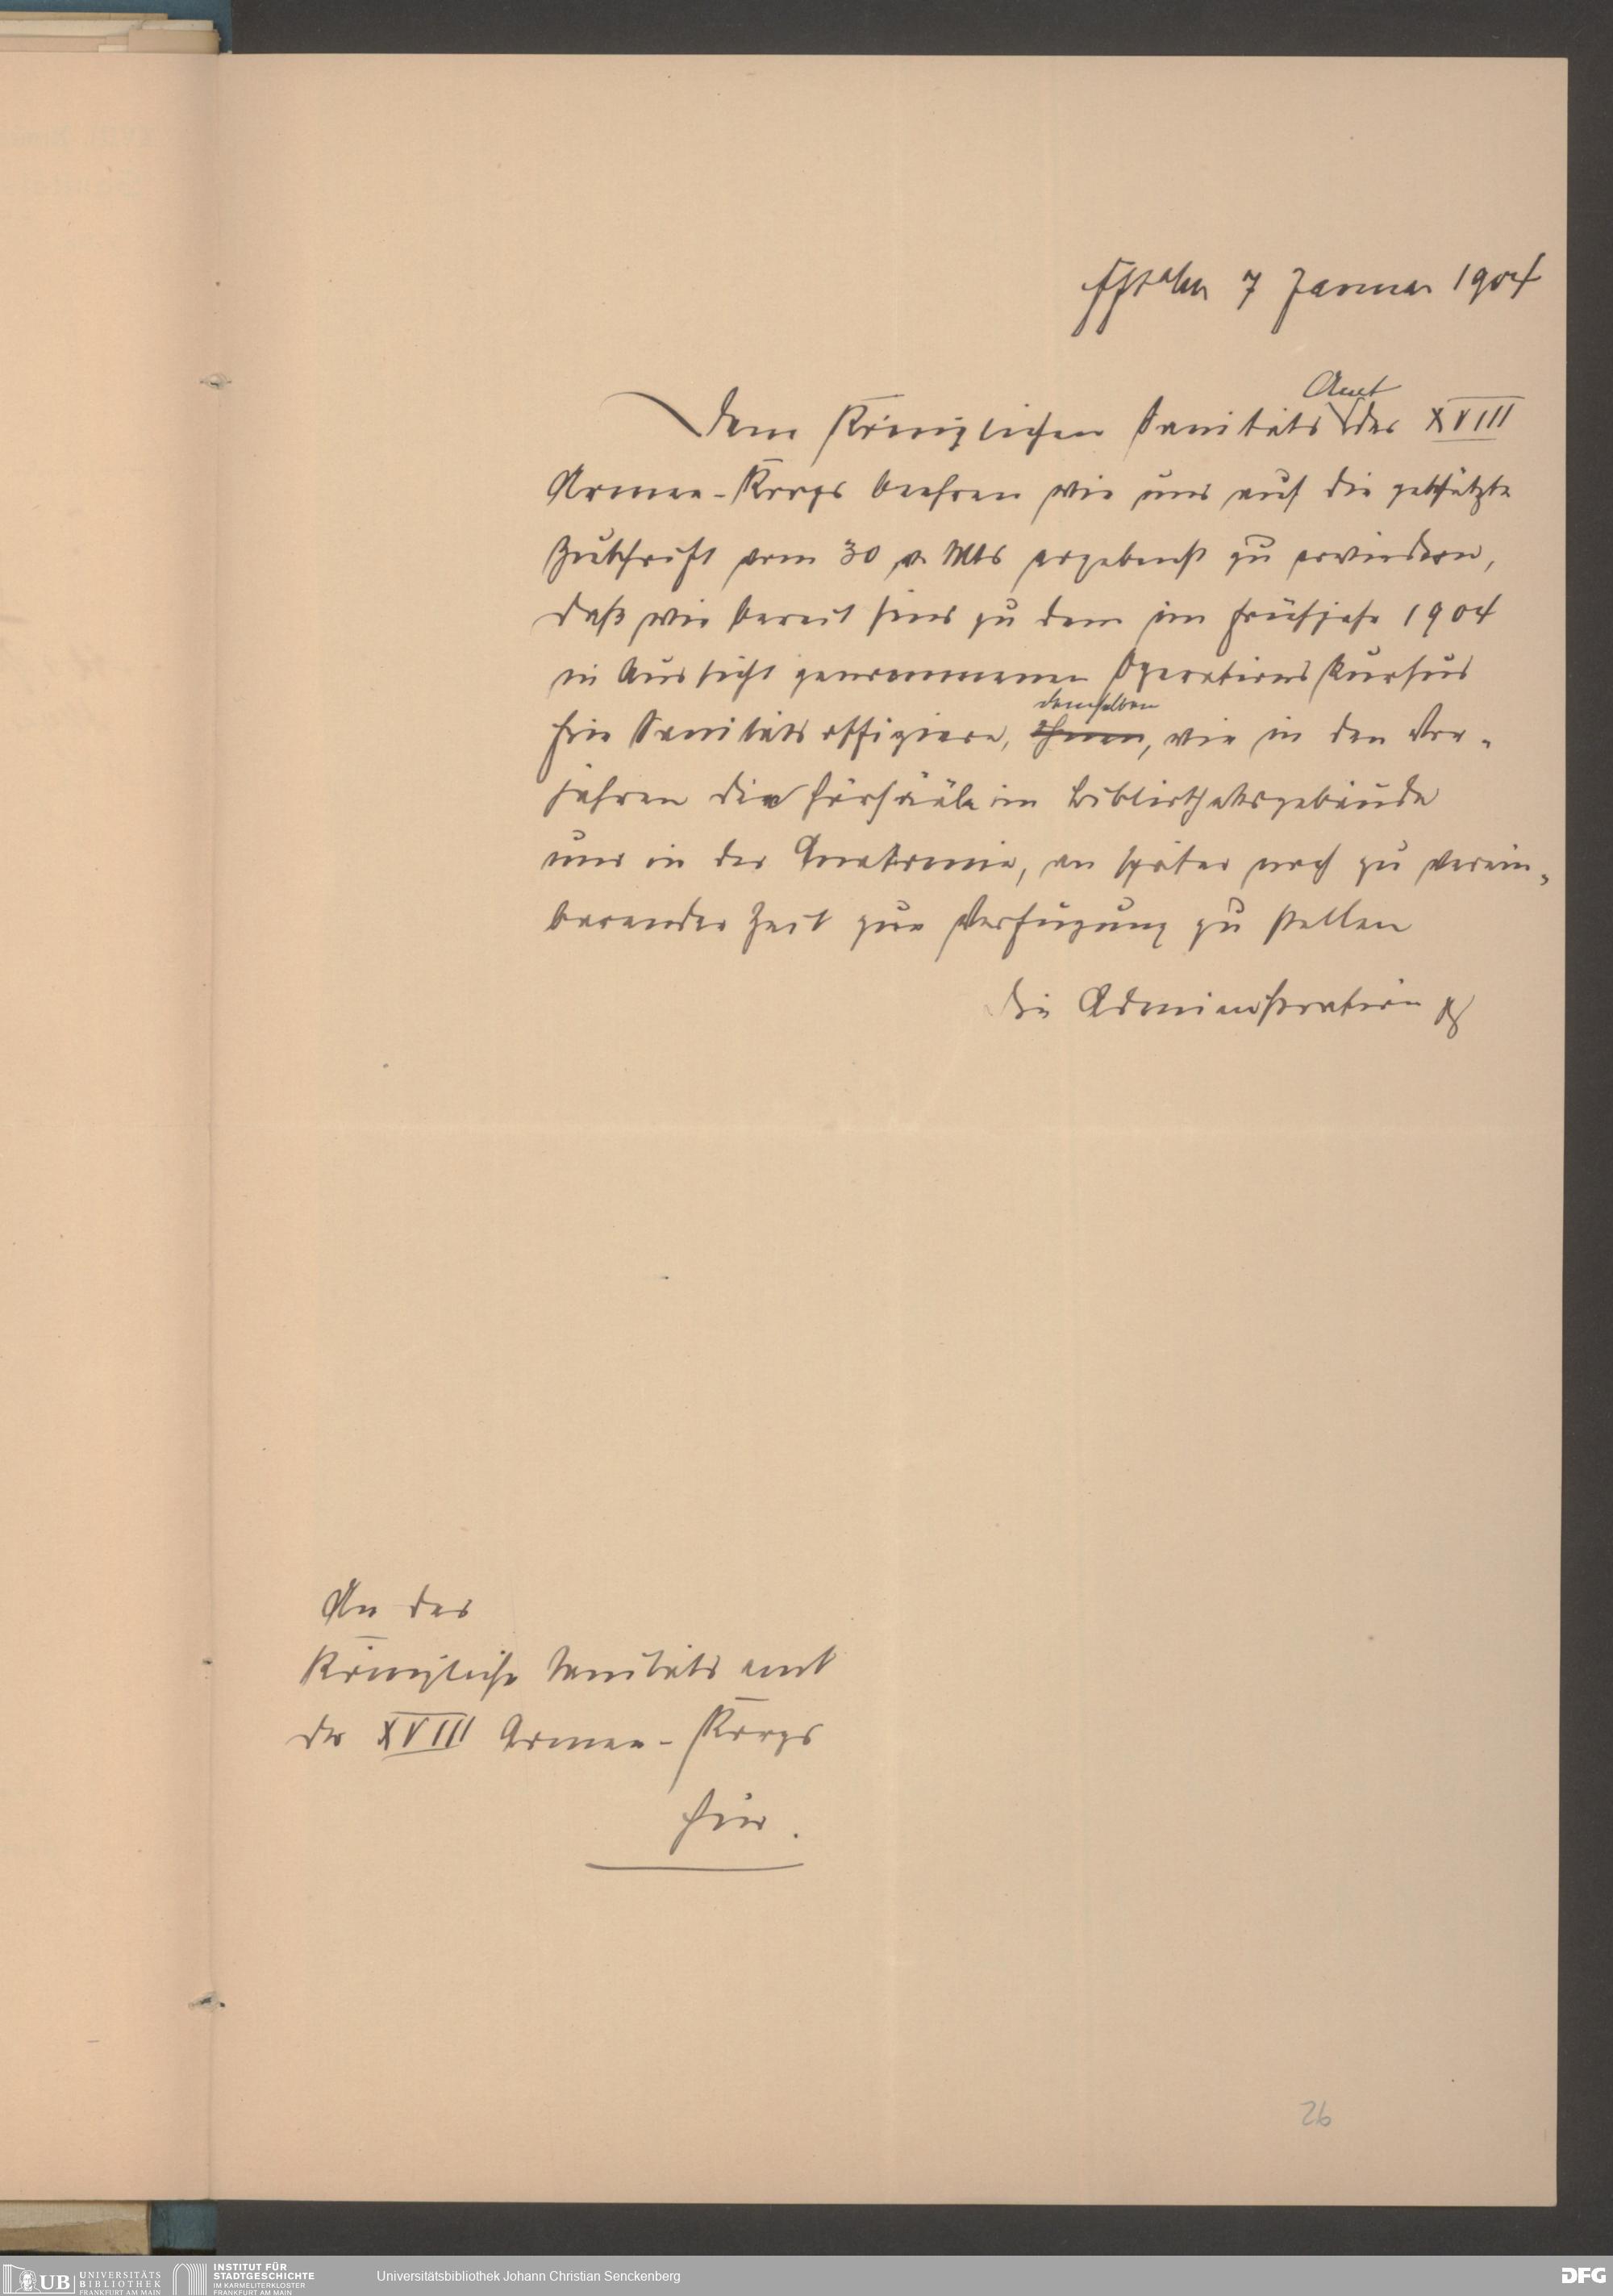 Ffrt a/M 7 Januar 1904
Amt
Dem Königlichen Sanitäts des XVIII
Armee-Korps beehren wir uns auf die geschätzte
Zuschrift vom 30 v. Mts ergebenst zu erwiedern,
daß wir bereit sind zu dem im Frühjahr 1904
in Aussicht genommenen Operations Kursus
demselben
für Sanitäts offiziere, Ihnen, wie in den Vor-
jahren die Hörsääle im Bibliotheksgebäude
und in der Anatomie, an später noch zu verein-
barender Zeit zur Verfügung zu stellen
Die Administration
An das
Königliche Sanitäts amt
des XVIII Armee-Korps
hier.
26
UB UNIVERSITÄTS
BIBLIOTHEK
FRANKFURT AM MAIN
INSTITUT FÜR
STADTGESCHICHTE
IM KARMELITERKLOSTER
FRANKFURT AM MAIN
Universitätsbibliothek Johann Christian Senckenberg
DFG